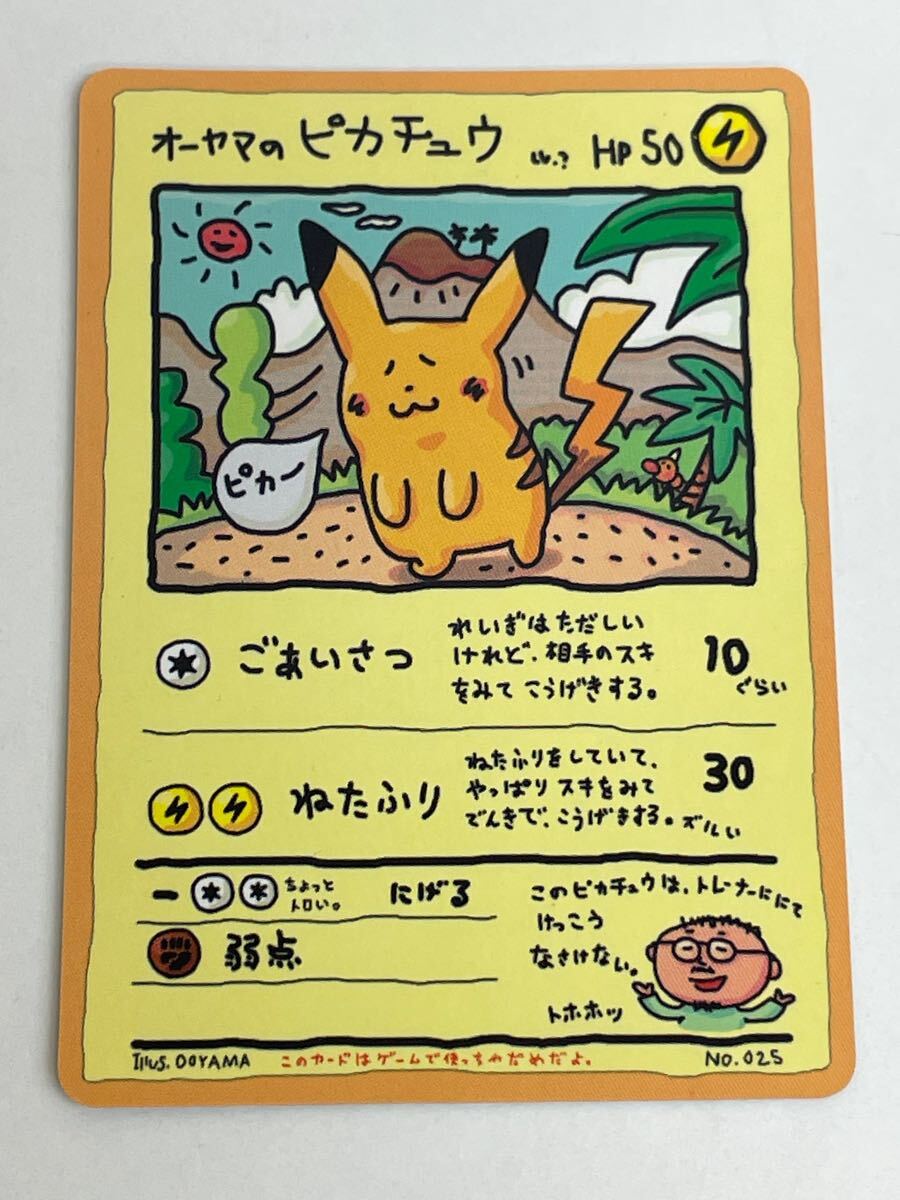 オーヤマの ピカチュウ Lv.? HP 50
ピカー
ごあいさつ
れいぎはただしい
けれど、相手のスキ
をみて こうげきする。
10
ぐらい
ねたふり
ねたふりをしていて、
やっぱり スキをみて
でんきで、こうげきする。ズルい
30
ー ちょっと
トロい。
にげる
弱点
このピカチュウは、トレーナーににて
けっこう
なさけない。
トホホッ
Illus. OOYAMA このカードはゲームで使っちゃだめだよ。 NO. 025